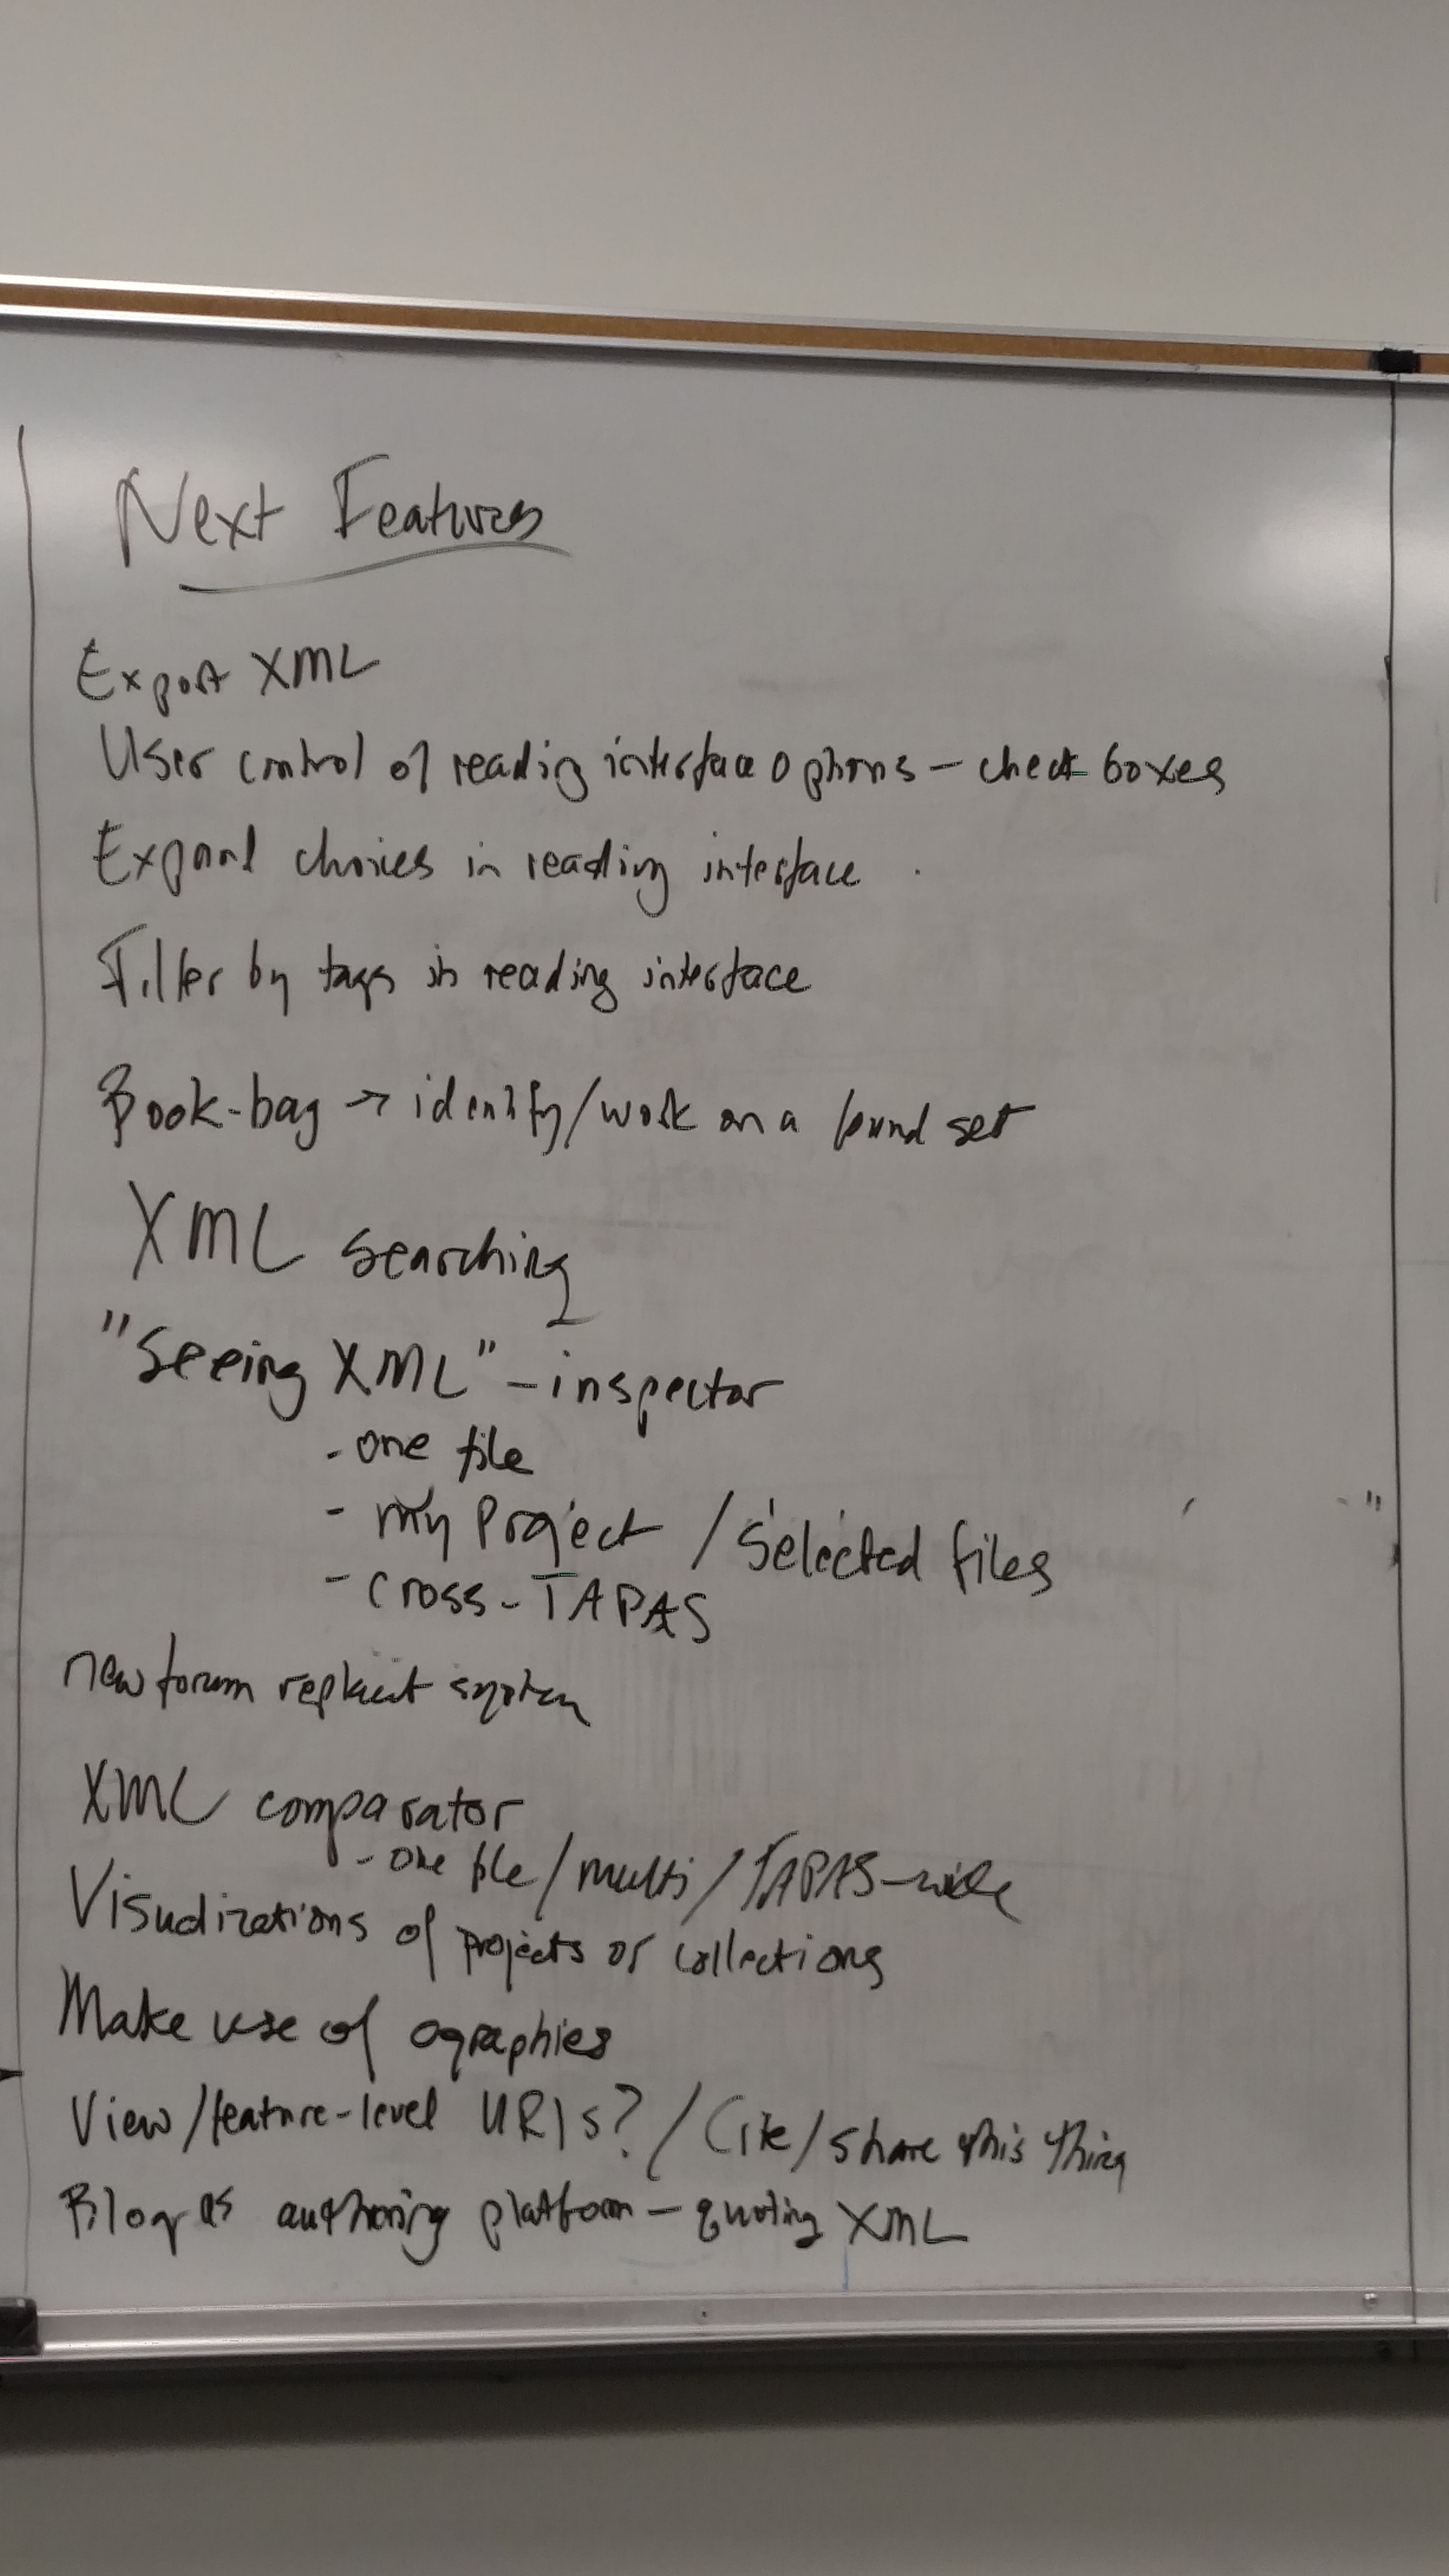 Next Features
Export XML
User control of reading interface options – check boxes
Expand choices in reading interface
Filter by tags in reading interface
Book-bag → identify/work on a found set
XML searching
"Seeing XML" – inspector
- one file
- my Project / Selected files
- cross-TAPAS
new forum system
XML comparator
- one file / multi / TAPAS-wide
Visualizations of projects or collections
Make use of ographies
View/feature-level URIs? / Cite/share this thing
Blog as authoring platform – quoting XML